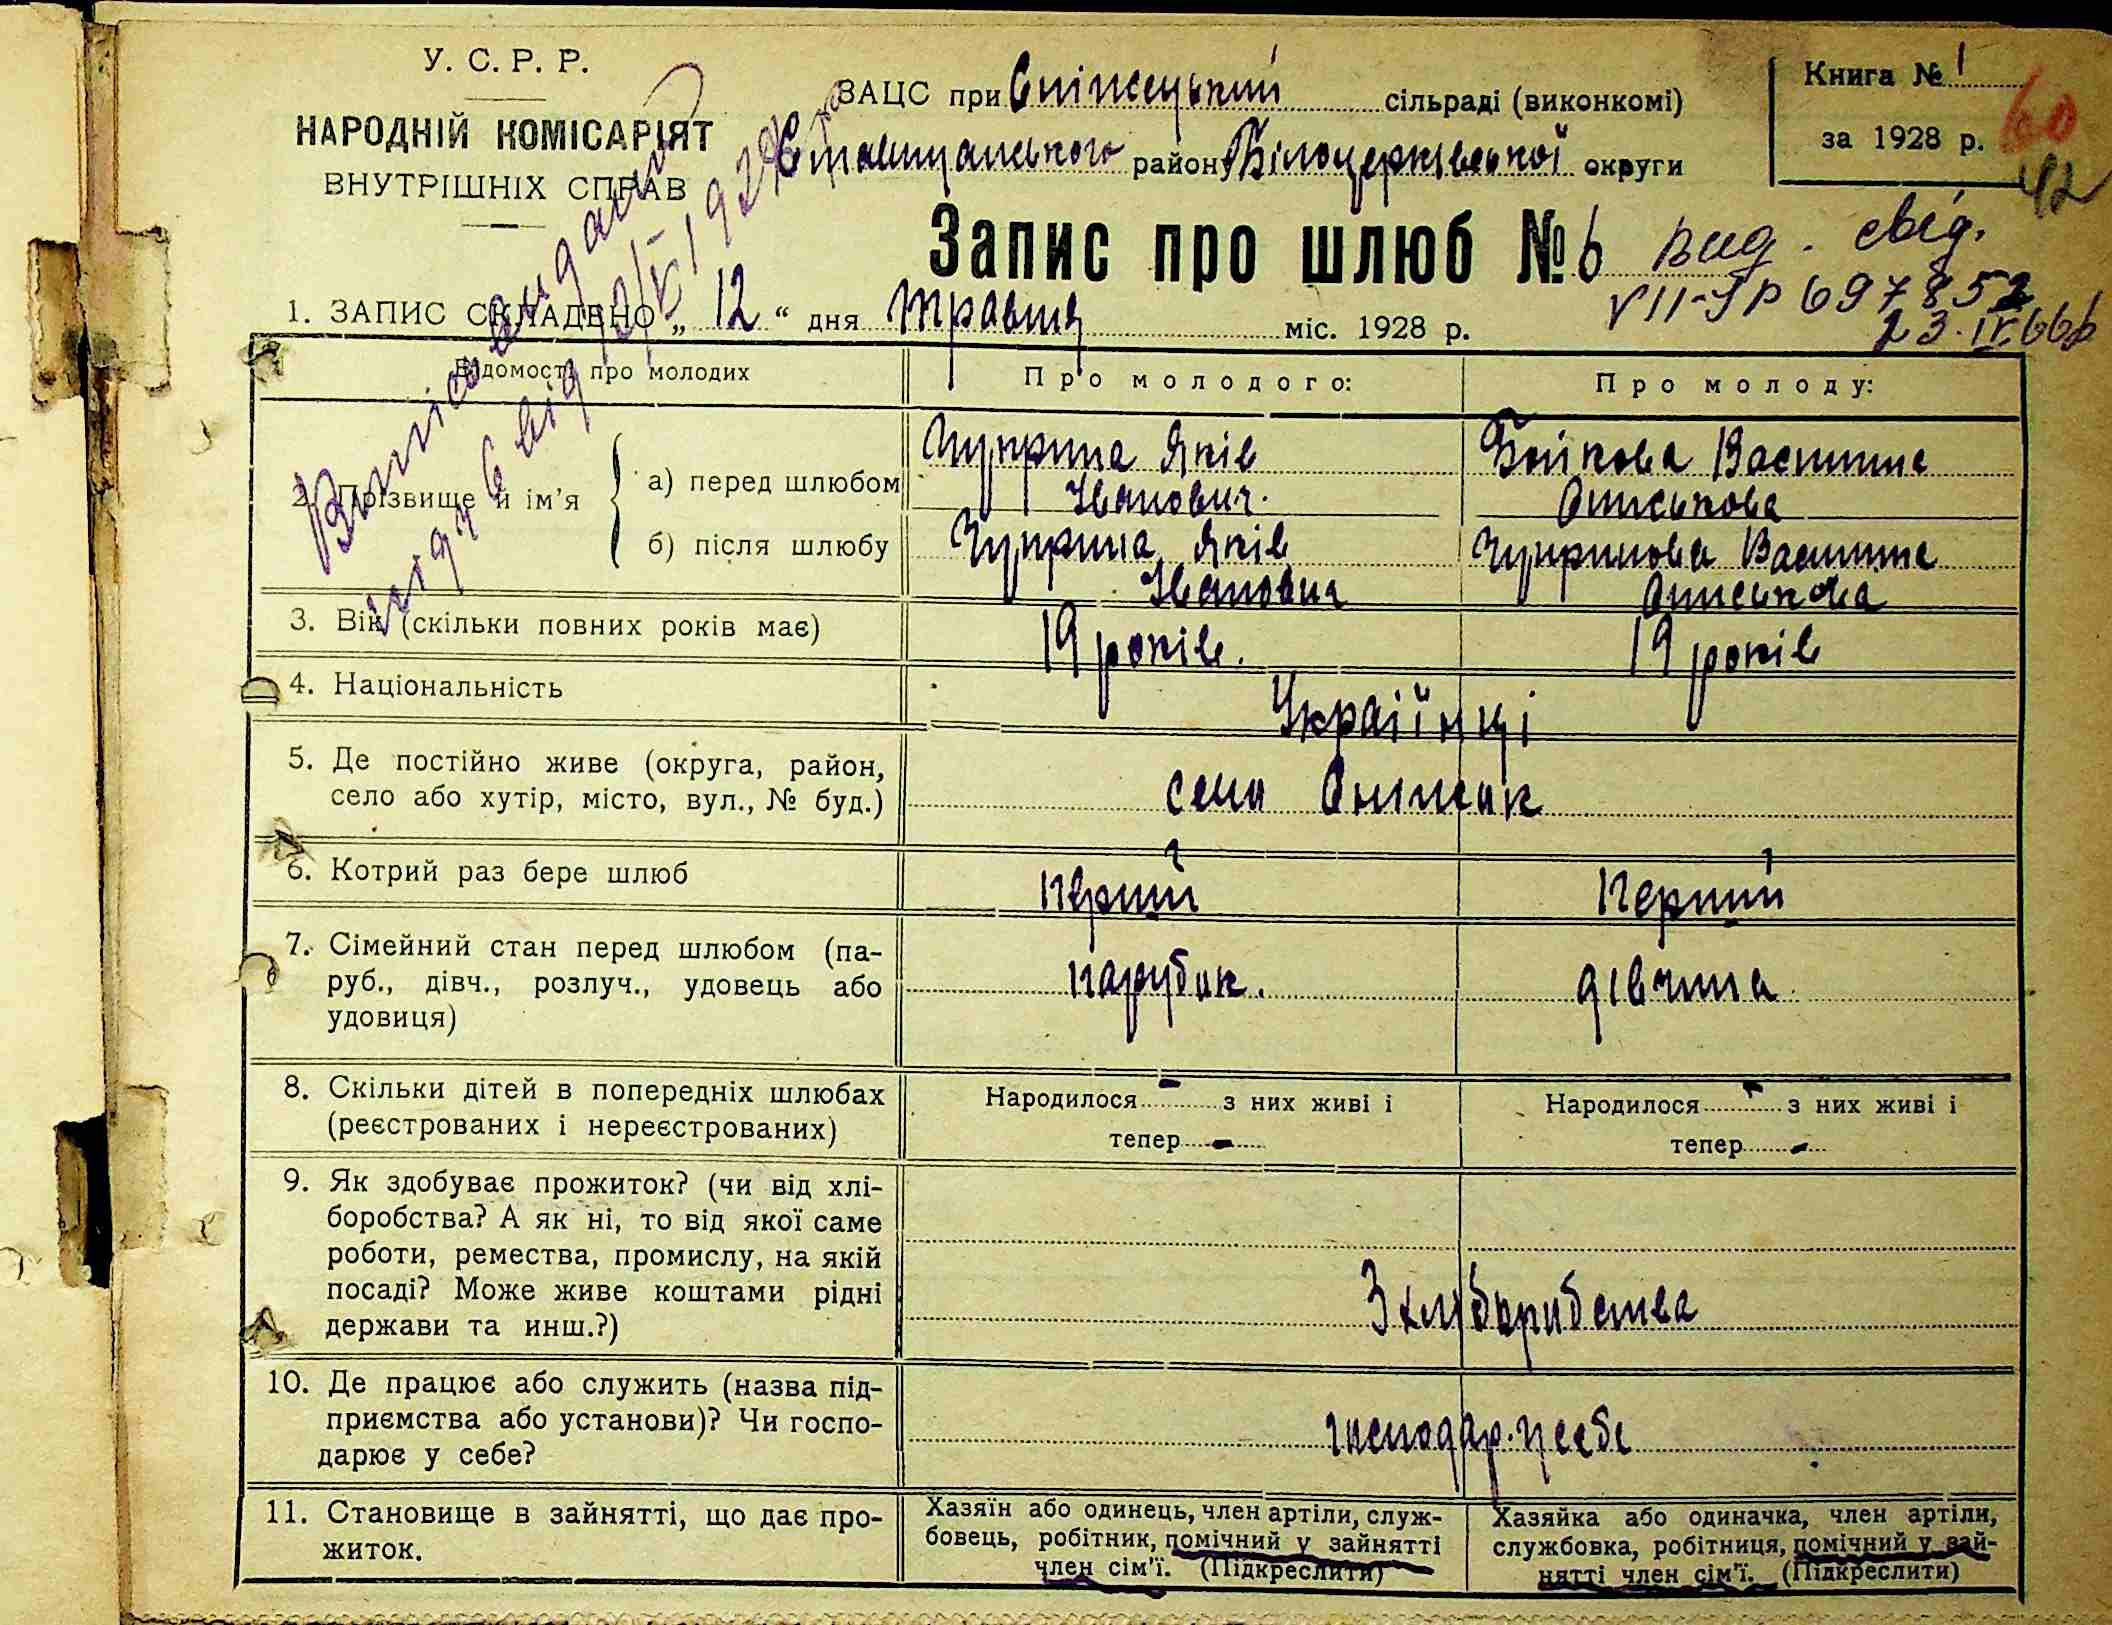 У. С. Р. Р.
НАРОДНІЙ КОМІСАРІЯТ
ВНУТРІШНІХ СПРАВ
ЗАЦС при Сніжецький сільраді (виконкомі)
Ставищанського району Білоцерківської округи
Книга № 1
за 1928 р.
60
42
Запис про шлюб № 6
вид. свід.
VII-ЯР 697852
23.IV.66
1. ЗАПИС СКЛАДЕНО „ 12 “ дня травня міс. 1928 р.
Відомості про молодих
Про молодого:
Про молоду:
2. Прізвище й ім’я
а) перед шлюбом
Чуприна Яків
Іванович.
Бойкова Василина
Оноськова
б) після шлюбу
Чуприна Яків
Іванович
Чупринова Василина
Оноськова
3. Вік (скільки повних років має)
19 років.
19 років
4. Національність
Украіїнці
5. Де постійно живе (округа, район,
село або хутір, місто, вул., № буд.)
село Снижок
6. Котрий раз бере шлюб
перший
перший
7. Сімейний стан перед шлюбом (па-
руб., дівч., розлуч., удовець або
удовиця)
парубок.
дівчина
8. Скільки дітей в попередніх шлюбах
(реєстрованих і нереєстрованих)
Народилося - з них живі і
тепер -
Народилося - з них живі і
тепер -
9. Як здобуває прожиток? (чи від хлі-
боробства? А як ні, то від якої саме
роботи, ремества, промислу, на якій
посаді? Може живе коштами рідні
держави та инш.?)
З хліборобства
10. Де працює або служить (назва під-
приємства або установи)? Чи госпо-
дарює у себе?
господар. у себе
11. Становище в зайнятті, що дає про-
житок.
Хазяїн або одинець, член артіли, служ-
бовець, робітник, помічний у зайнятті
член сім’ї. (Підкреслити)
Хазяйка або одиначка, член артіли,
службовка, робітниця, помічний у зай-
нятті член сім’ї. (Підкреслити)